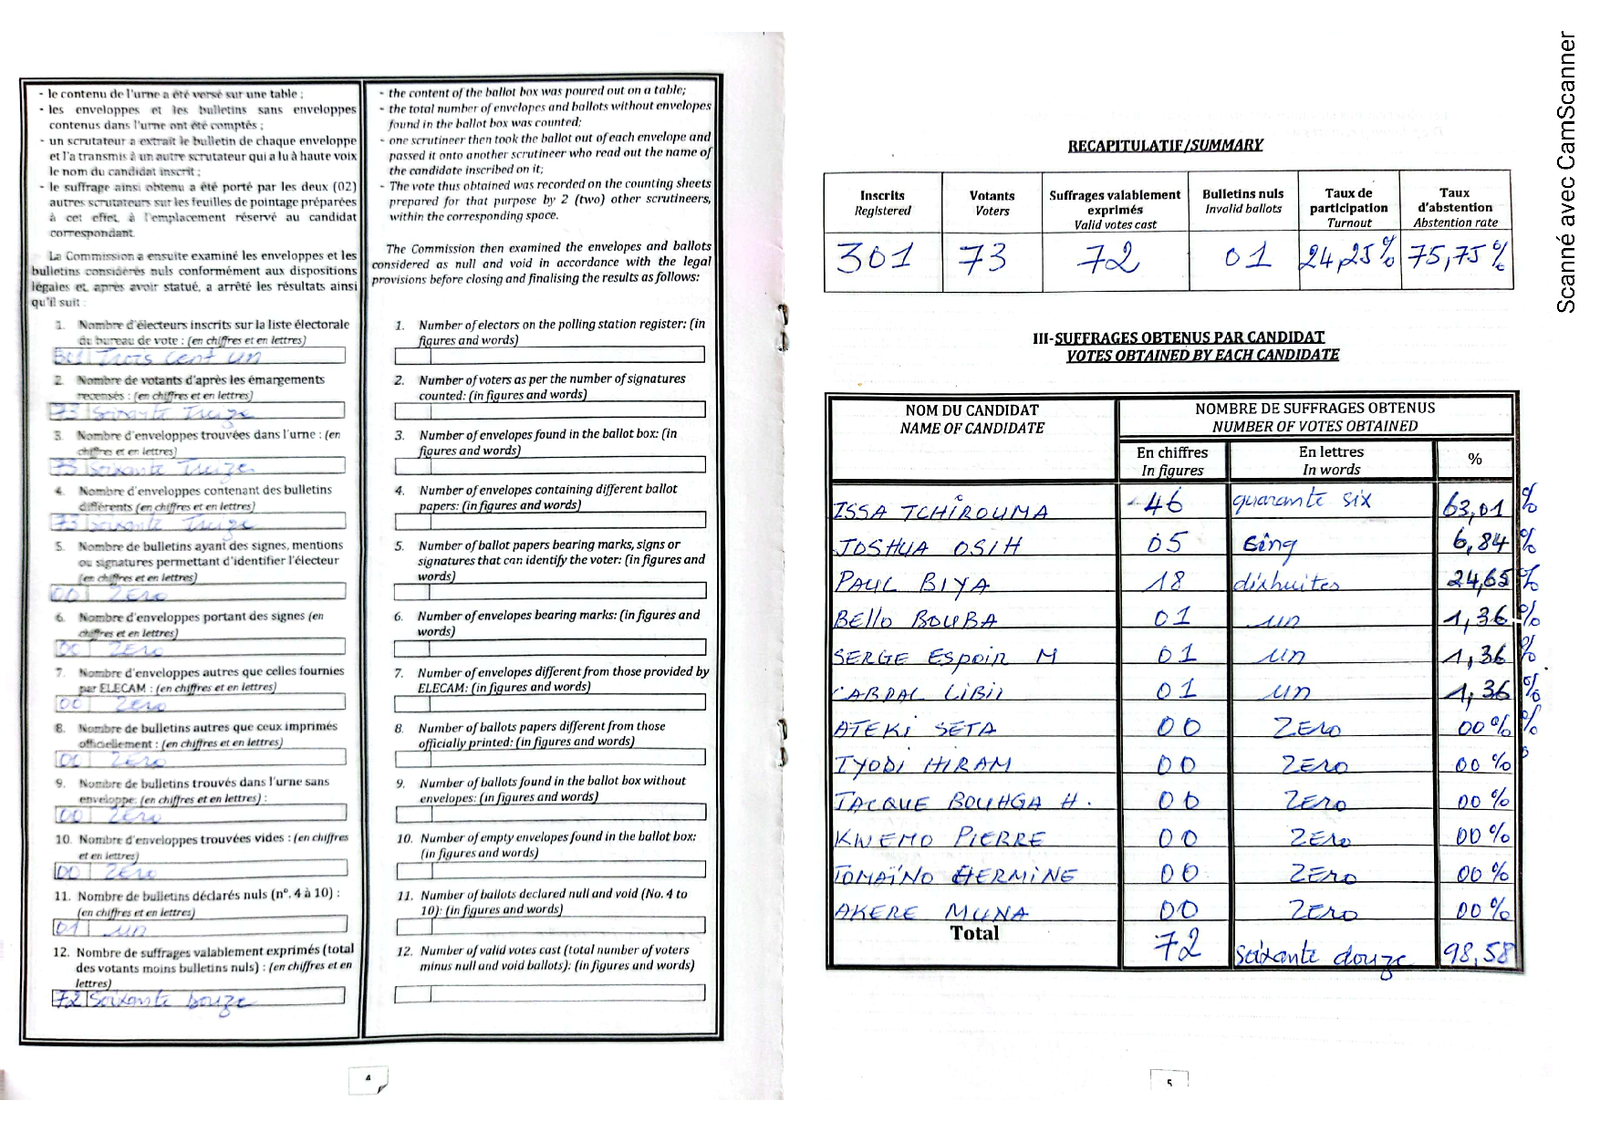 - le contenu de l'urne a été versé sur une table ;
- les enveloppes et les bulletins sans enveloppes
contenus dans l'urne ont été comptés ;
- un scrutateur a extrait le bulletin de chaque enveloppe
et l'a transmis à un autre scrutateur qui a lu à haute voix
le nom du candidat inscrit ;
- le suffrage ainsi obtenu a été porté par les deux (02)
autres scrutateurs sur les feuilles de pointage préparées
à cet effet, à l'emplacement réservé au candidat
correspondant.
La Commission a ensuite examiné les enveloppes et les
bulletins considérés nuls conformément aux dispositions
légales et, après avoir statué, a arrêté les résultats ainsi
qu'il suit :
1. Nombre d'électeurs inscrits sur la liste électorale
du bureau de vote : (en chiffres et en lettres)
301 Trois cent un
2. Nombre de votants d'après les émargements
recensés : (en chiffres et en lettres)
73 Soixante Treize
3. Nombre d'enveloppes trouvées dans l'urne : (en
chiffres et en lettres)
73 Soixante Treize
4. Nombre d'enveloppes contenant des bulletins
différents (en chiffres et en lettres)
73 Soixante Treize
5. Nombre de bulletins ayant des signes, mentions
ou signatures permettant d'identifier l'électeur
(en chiffres et en lettres)
00 Zero
6. Nombre d'enveloppes portant des signes (en
chiffres et en lettres)
00 Zero
7. Nombre d'enveloppes autres que celles fournies
par ELECAM : (en chiffres et en lettres)
00 Zero
8. Nombre de bulletins autres que ceux imprimés
officiellement : (en chiffres et en lettres)
00 Zero
9. Nombre de bulletins trouvés dans l'urne sans
enveloppe: (en chiffres et en lettres) :
00 Zero
10. Nombre d'enveloppes trouvées vides : (en chiffres
et en lettres)
00 Zero
11. Nombre de bulletins déclarés nuls (n°. 4 à 10) :
(en chiffres et en lettres)
01 un
12. Nombre de suffrages valablement exprimés (total
des votants moins bulletins nuls) : (en chiffres et en
lettres)
72 Soixante Douze
- the content of the ballot box was poured out on a table;
- the total number of envelopes and ballots without envelopes
found in the ballot box was counted;
- one scrutineer then took the ballot out of each envelope and
passed it onto another scrutineer who read out the name of
the candidate inscribed on it;
- The vote thus obtained was recorded on the counting sheets
prepared for that purpose by 2 (two) other scrutineers,
within the corresponding space.
The Commission then examined the envelopes and ballots
considered as null and void in accordance with the legal
provisions before closing and finalising the results as follows:
1. Number of electors on the polling station register: (in
figures and words)
2. Number of voters as per the number of signatures
counted: (in figures and words)
3. Number of envelopes found in the ballot box: (in
figures and words)
4. Number of envelopes containing different ballot
papers: (in figures and words)
5. Number of ballot papers bearing marks, signs or
signatures that can identify the voter: (in figures and
words)
6. Number of envelopes bearing marks: (in figures and
words)
7. Number of envelopes different from those provided by
ELECAM: (in figures and words)
8. Number of ballots papers different from those
officially printed: (in figures and words)
9. Number of ballots found in the ballot box without
envelopes: (in figures and words)
10. Number of empty envelopes found in the ballot box:
(in figures and words)
11. Number of ballots declared null and void (No. 4 to
10): (in figures and words)
12. Number of valid votes cast (total number of voters
minus null and void ballots): (in figures and words)
4
RECAPITULATIF/SUMMARY
Inscrits Registered Votants Voters Suffrages valablement exprimés Valid votes cast Bulletins nuls Invalid ballots Taux de participation Turnout Taux d'abstention Abstention rate
301 73 72 01 24,25% 75,75%
III-SUFFRAGES OBTENUS PAR CANDIDAT
VOTES OBTAINED BY EACH CANDIDATE
NOM DU CANDIDAT NAME OF CANDIDATE
NOMBRE DE SUFFRAGES OBTENUS
NUMBER OF VOTES OBTAINED
En chiffres In figures En lettres In words %
ISSA TCHIROUMA 46 quarante six 63,01 %
JOSHUA OSIH 05 Cinq 6,84 %
PAUL BIYA 18 dixhuites 24,65 %
BEllo BOUBA 01 un 1,36 %
SERGE ESpoir M 01 un 1,36 %
CABRAL LIBII 01 un 1,36 %
ATEKI SETA 00 ZEro 00 % %
IYODI HIRAM 00 ZEro 00 %
JACQUE BOUHGA H. 00 ZEro 00 %
KWEMO PIERRE 00 ZEro 00 %
TOMAÏNO HERMINE 00 ZEro 00 %
AKERE MUNA 00 ZEro 00 %
Total 72 soixante douze 98,58
5
Scanné avec CamScanner